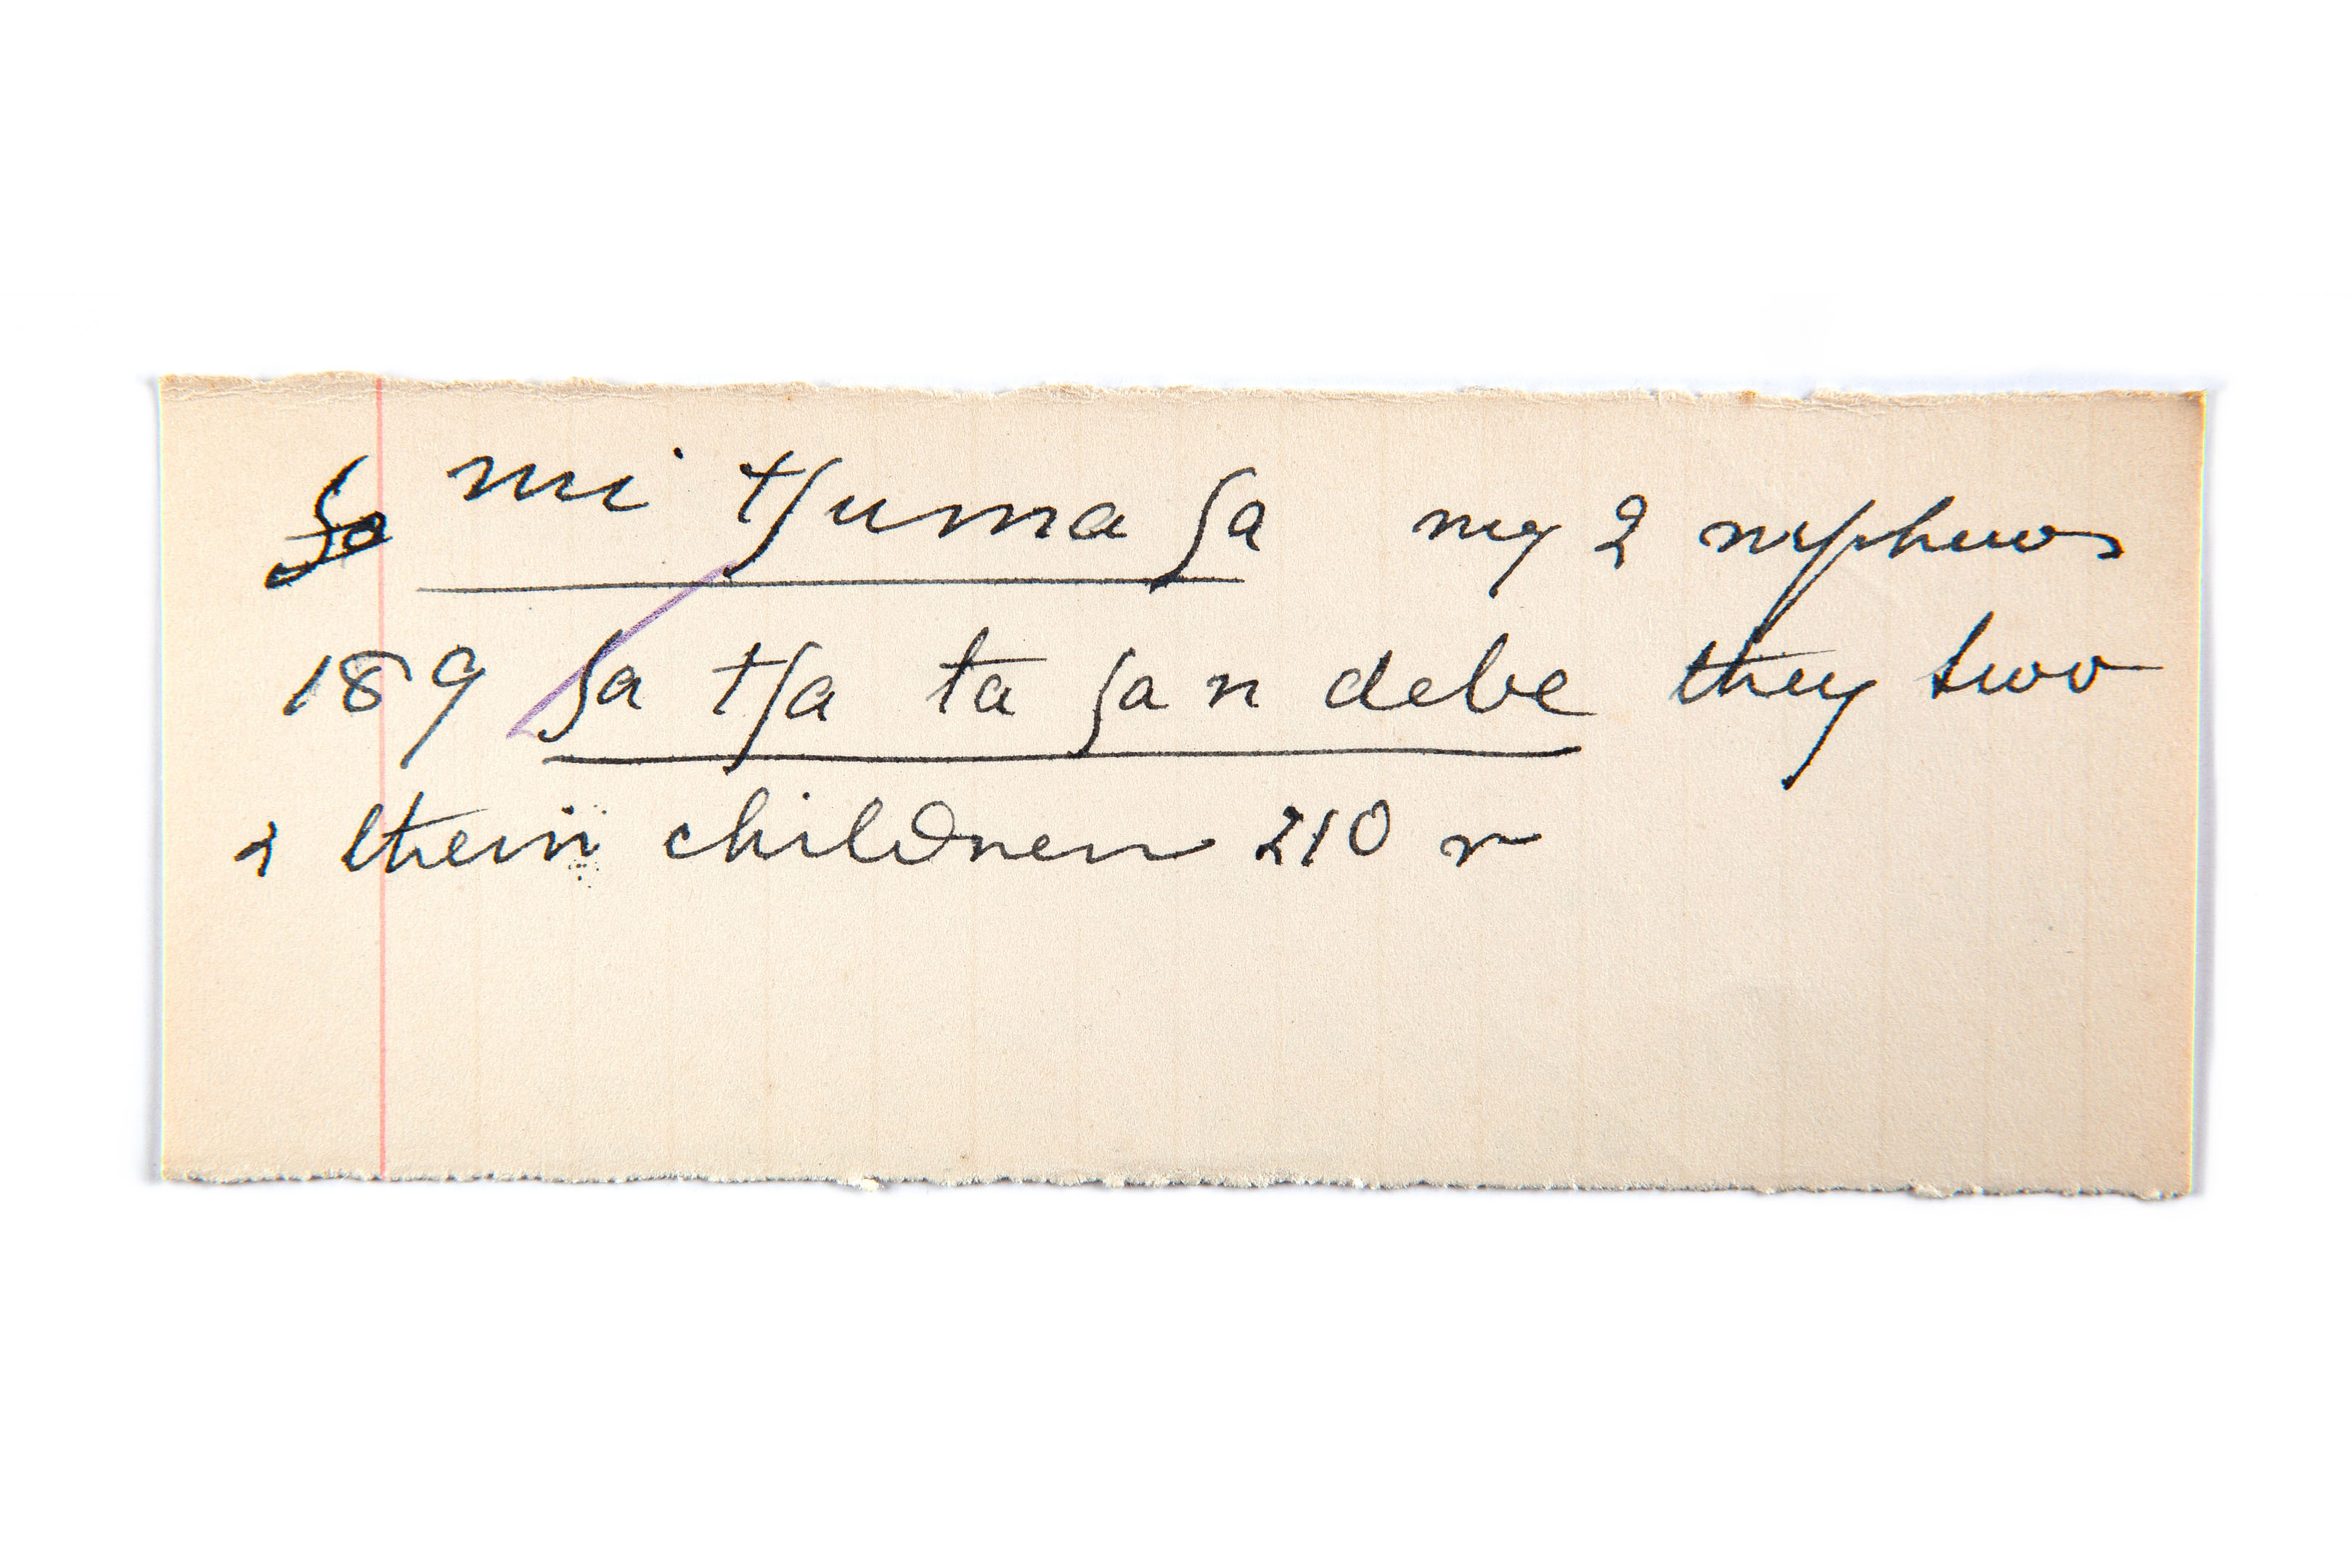 ʃa mi tʃuma ʃa my 2 nephews
189 ʃa tʃa ta ʃa n debe they two
& their children 210 r